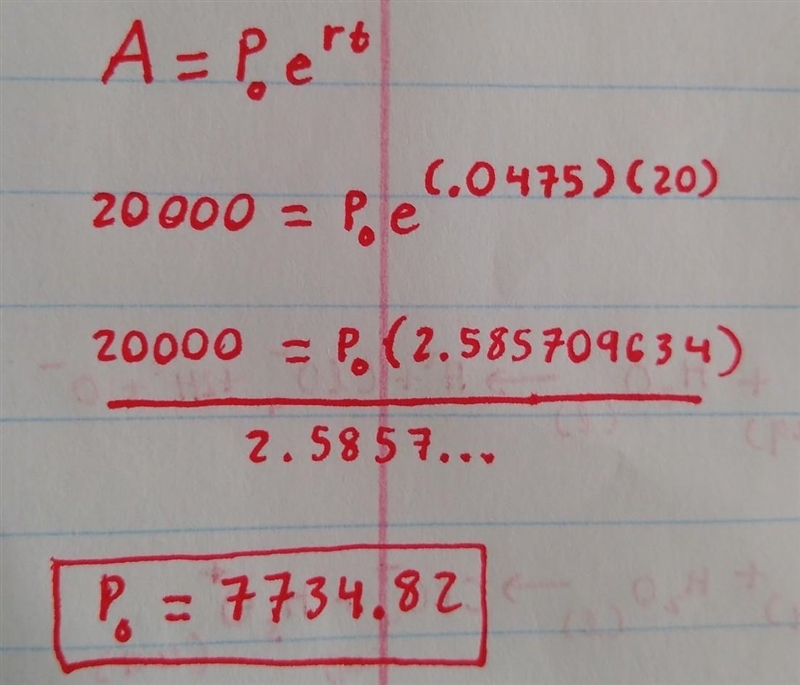 A = P₀e^rt
20000 = P₀e^(.0475)(20)
20000 = P₀(2.585709634)
2.5857...
P₀ = 7734.82